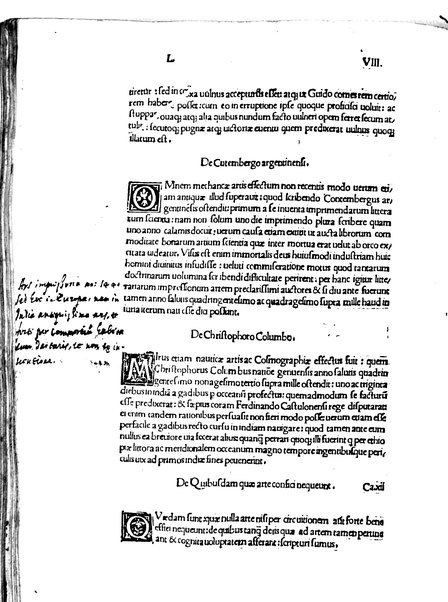 L VIII.
tiretur: sed in coxa uolnus accepturus esset atqʒ ut Guido comes rem certio,
rem haberet posset: cum eo in eruptione ipse quoque proficisci uoluit: ac
stuppam ouaqʒ atqʒ alia quibus nundum facto uulneri opem ferret secum at,
tulit: secutoqʒ pugnæ atqʒ uictoriæ euentu quem predixerat uulnus quoqʒ
illatum est.
De Cutembergo argentinensi.
OMnem mechanicæ artis effectum non recentis modo uerum eti,
am antiquæ illud superauit: quod scribendo Contembergus ar,
gentinensis ostendit: primum a se inuenta imprimendarum littera
tum scientia: nam non solum uno die imprimendo plura scribere quam
uno anno calamos docuit: uerum causa etiam extitit ut aucta librorum com
moditate bonarum artium scientia quæ inter mortua erat uelut ab orco ex,
citata uideatur. Visus est enim immortalis deus huiusmodi industriam huic
homini diuinitus infudisse: ueluti commiseratione motus quod tantarum
doctrinarum uolumina scribendi difficultate perirent: per hanc igitur litte
rarum impressionem artem preclarissimi auctores & si diu ante fuerunt
tamen anno salutis quadringentesimo ac quadragesimo supra mille haud in
iuria iterum nati esse dici possunt.
Ars impressoria
sed hec in Europa: nam in
India antiquissima ars, et
De Christophoro Columbo.
MIrus etiam nauticæ artis ac Cosmographiæ effectus fuit: quem
Christophorus Columbus natione genuensis anno salutis quadrin
gentesimo nonagesimo tertio supra mille ostendit: uno ac triginta
diebus in india a gadibus p oceanum profectus: quemadmodum se facturum
esse predixerat: & sæpius coram Ferdinando Castulonensi rege disputarat
ei enim tandem rationibus persuasit non fieri modo posse uerum etiam esse
perfacile a gadibus recto cursu in indiam nauigare: quod tamen ante eum
nullus ea breuiore uia fecerat alius: quanqʒ perrari quoqʒ illi fuerint q per ethio
piæ littora ac meridionalem oceanum magno tempore ingentibusque peri,
culis uix ad primos indiæ fines peuenerint.
De Quibusdam quæ arte confici nequeunt. Ca.xii
QVædam sunt: quæ nulla arte nisi per circuitionem aut forte bene
effici nequeunt: de quibus tanqʒ de iis quæ ad artem tamen pertine
ant & cognita uoluptatem afferant: scripturi sumus.